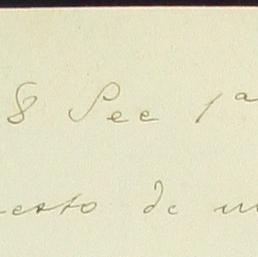 8 Sec 1ª
esto de